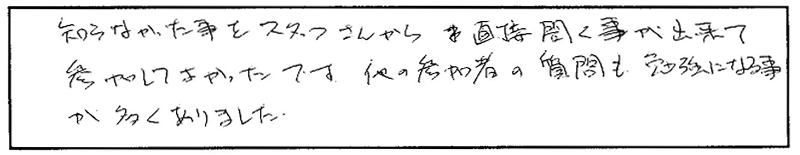 知らなかった事をスタッフさんから直接聞く事が出来て
参加してよかったです 他の参加者の質問も 勉強になる事
が多くありました.